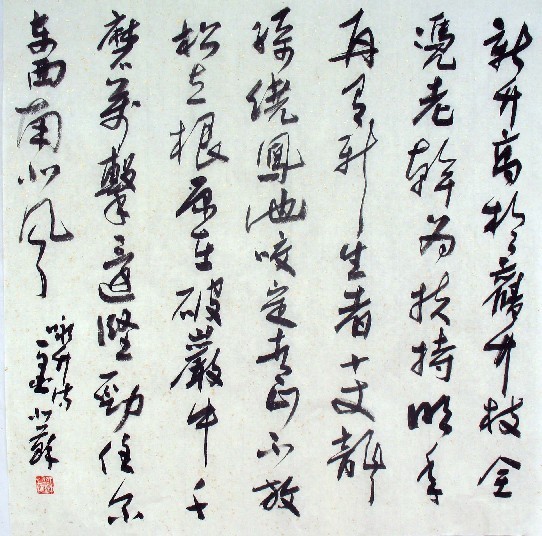 新竹高於舊竹枝全
憑老幹为扶持明年
再有新生者十丈龍
孫繞鳳池咬定青山不放
松立根原在破巖中千
磨萬擊還堅勁任尔
东西南北风
咏竹诗